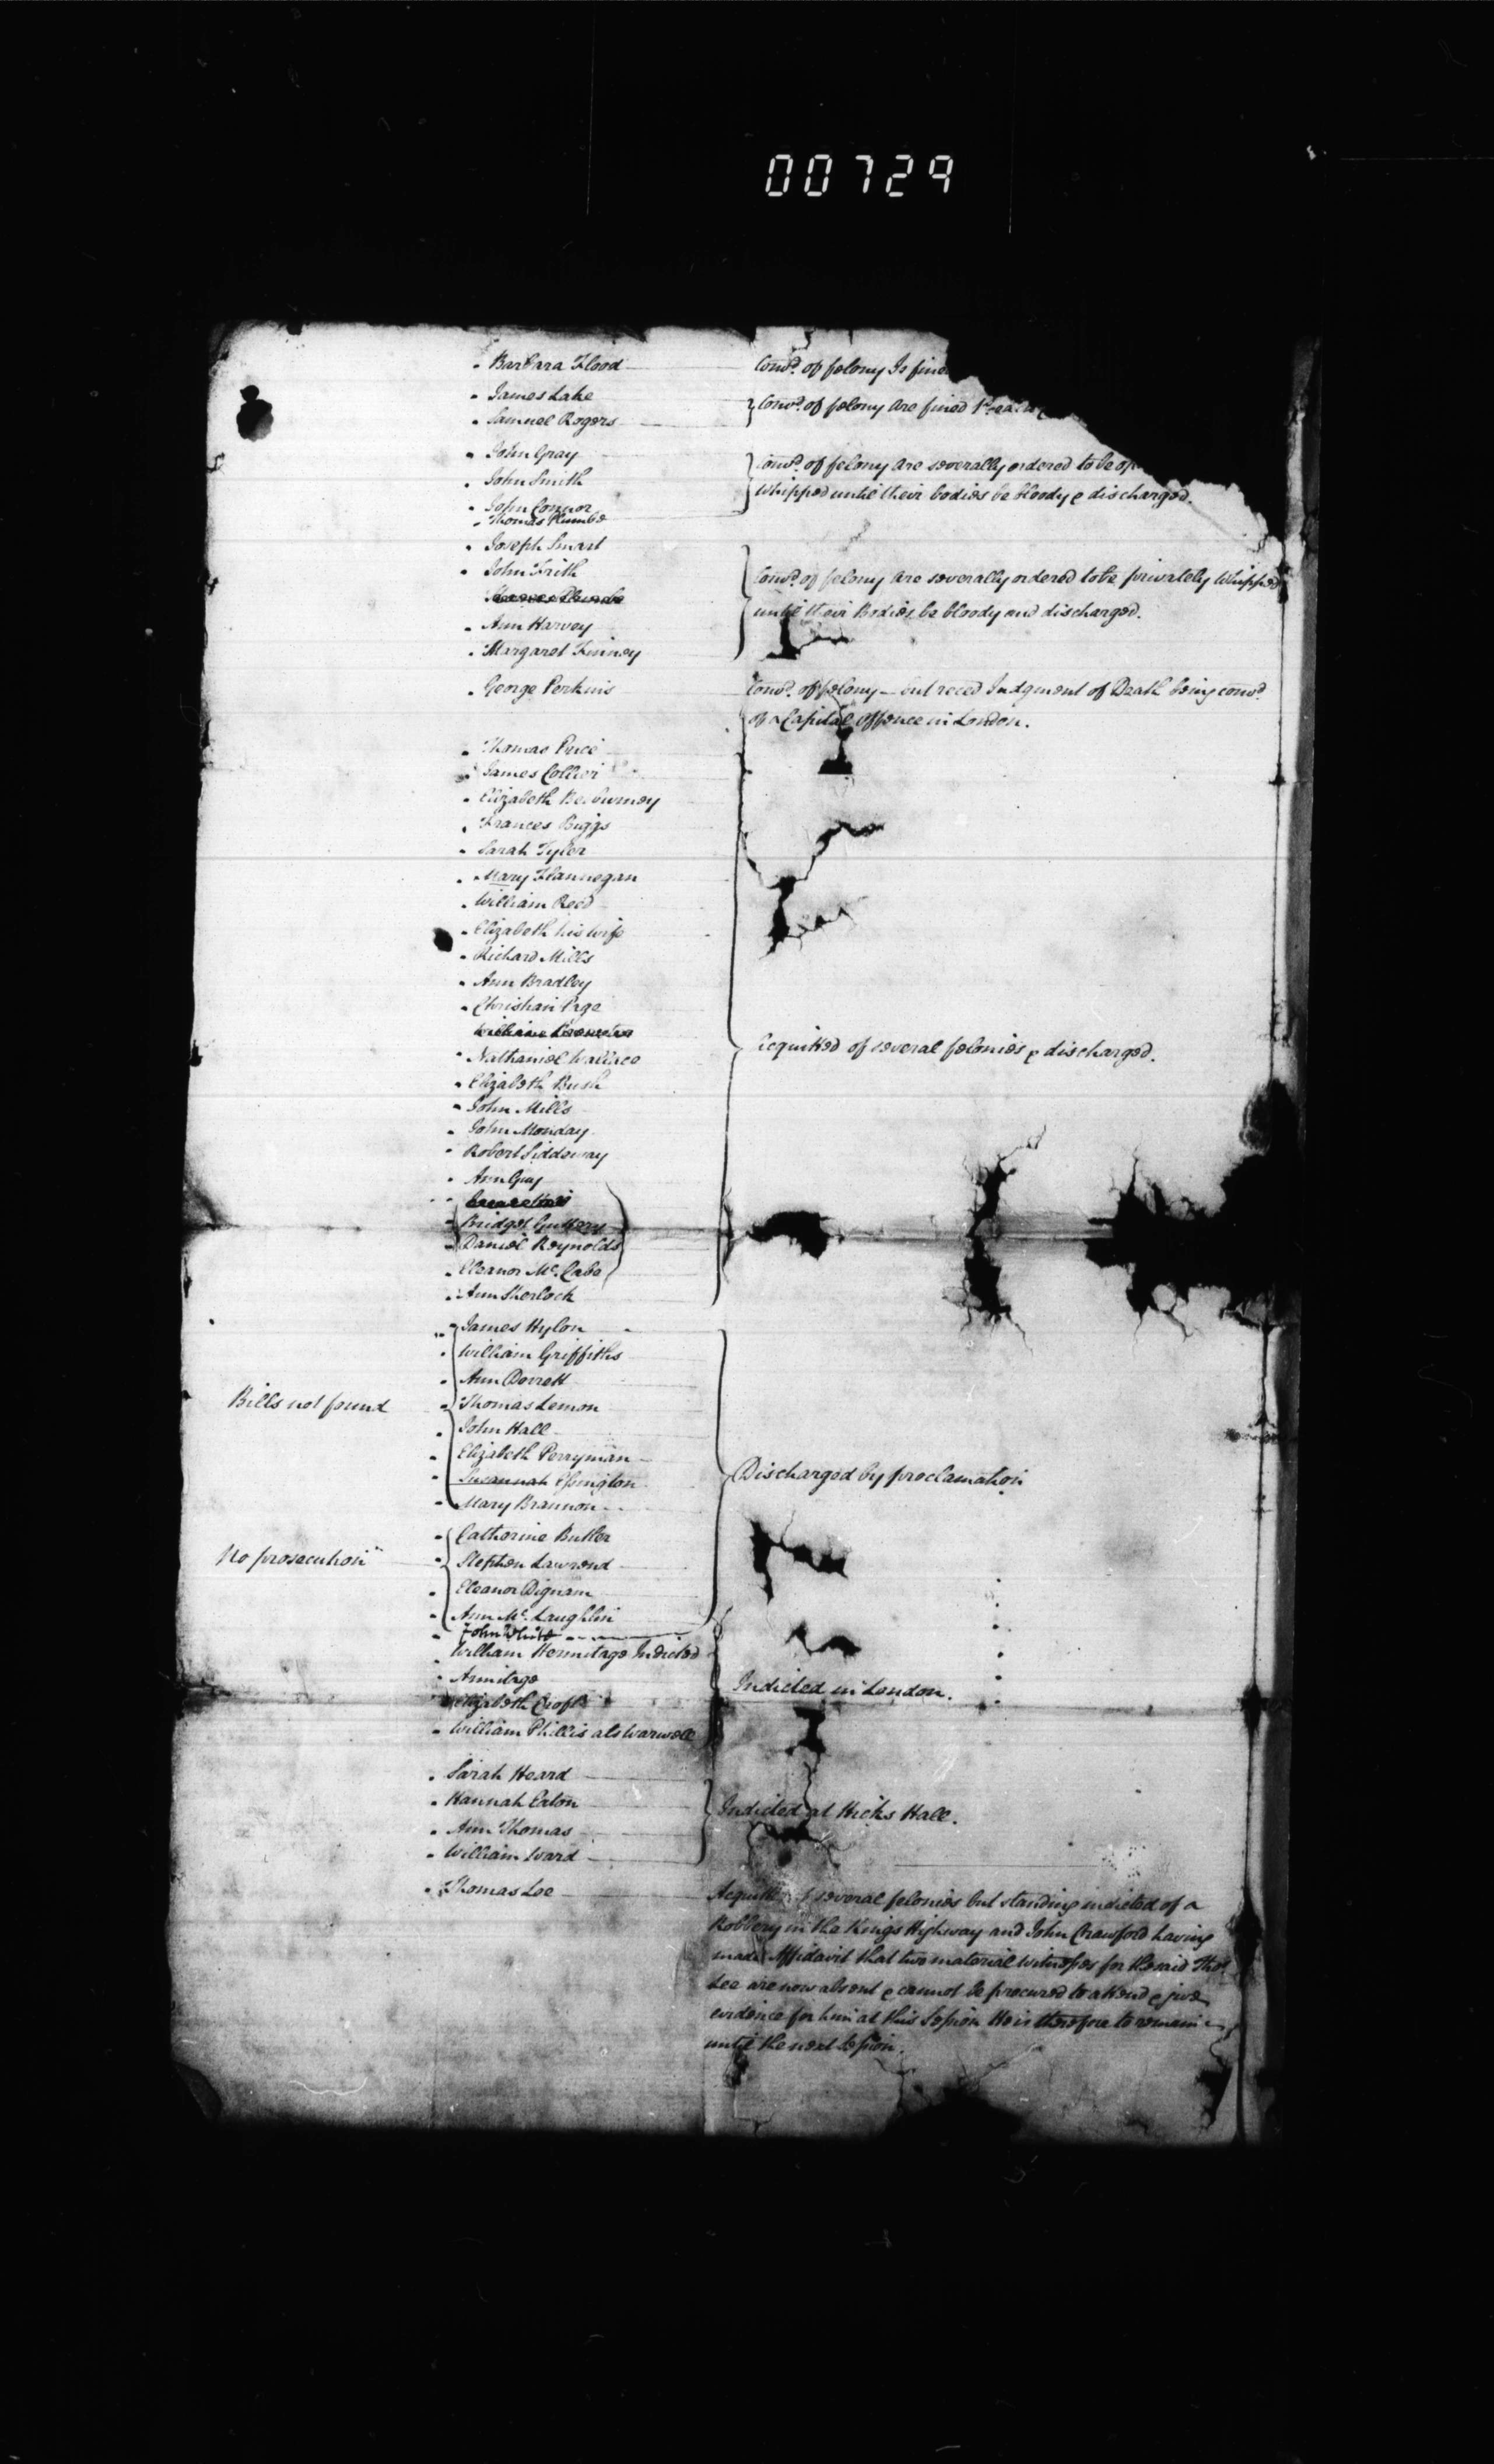 00729
Barbara Flood Conv.d of felony Is fined
James Lake
Samuel Rogers
Conv.d of felony Are fined 1s. each
John Gray
John Smith
John Connor
Thomas Plumbe
Conv.d of felony Are severally ordered to be op
Whipped until their bodies be bloody & discharged.
Joseph Smart
John Frith
Ann Harvey
Margaret Kinney
Conv.d of felony Are severally ordered to be privately Whipped
until their Bodies be bloody and discharged.
George Perkins Conv.d of felony – but reced Judgment of Death being conv.d
of a Capital Offence in London.
Thomas Price
James Collier
Elizabeth
Frances Biggs
Sarah Tyler
Mary Flannegan
William Reed
Elizabeth his wife
Richard Mills
Ann Bradley
Christian Page
Nathaniel Wallace
Elizabeth Bush
John Mills
John Monday
Robert Siddeway
Ann Guy
Bridget Guttery
Daniel Reynolds
Eleanor Mc.Cabe
Ann Sherlock
Acquitted of several felonies & discharged.
Bills not found
James Hylon
William Griffiths
Ann Dorrett
Thomas Lemon
John Hall
Elizabeth Perryman
Susannah Essington
Mary Brannon
No prosecution
Catherine Butler
Stephen Lawrend
Eleanor Dignam
Ann Mc.Laughlin
Discharged by proclamation
John White
William Hermitage Indicted
Armitage
Elizabeth Croft
William Phillis als Warwell
Indicted in London.
Sarah Heard
Hannah Eaton
Ann Thomas
William Ward
Indicted at Hicks Hall.
Thomas Lee Acquitted of several felonies but standing indicted of a
Robbery in the Kings Highway and John Crawford having
made Affidavit that two material witnesses for the said Thos.
Lee are now absent & cannot be procured to attend & give
evidence for him at this Session He is therefore to remain
until the next Session.